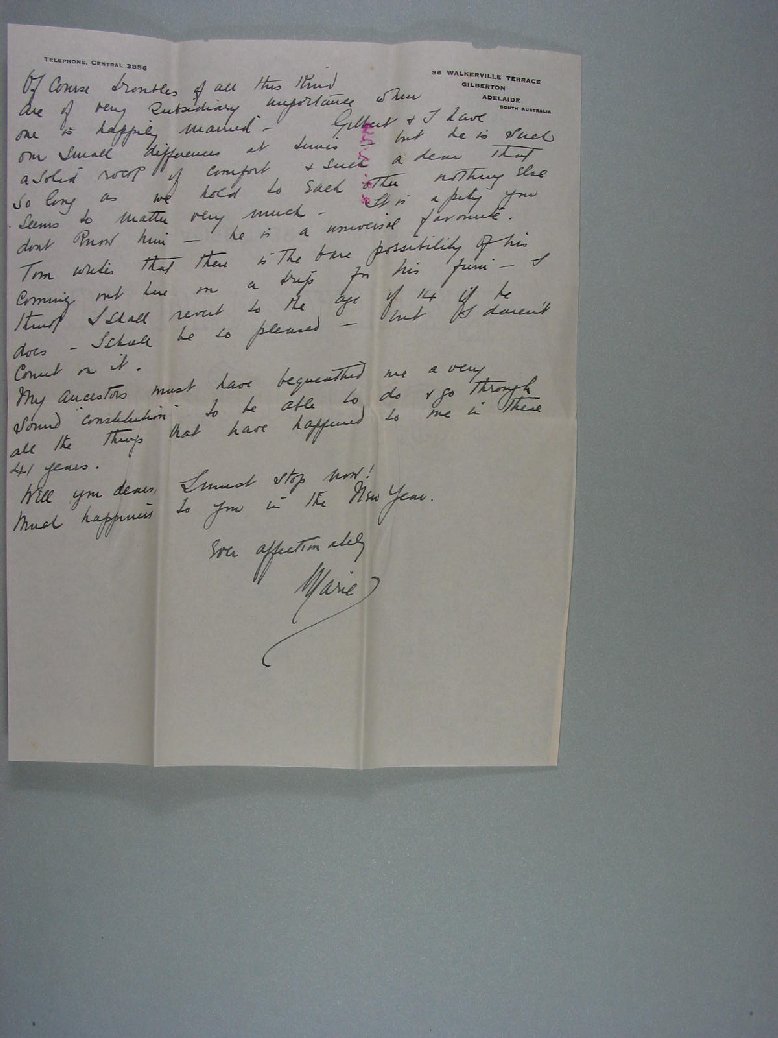 TELEPHONE, CENTRAL 3556
38 WALKERVILLE TERRACE
GILBERTON
ADELAIDE
SOUTH AUSTRALIA
Of course troubles of all this kind
are of very subsidiary importance when
one is happily married - Gilbert & I have
our small differences at times but he is such
a solid rock of comfort & such a dear that
so long as we hold to each other nothing else
seems to matter very much - It is a pity you
dont know him - he is a universal favourite.
Tom writes that there is the bare possibility of his
coming out here on a trip for his firm - I
think I shall revert to the age of 14 if he
does - I shall be so pleased - but I daren't
count on it.
My ancestors must have bequeathed me a very
sound "constitution" to be able to do & go through
all the things that have happened to me in these
41 years.
Well you dears, I must stop now!
Much happiness to you in the New Year.
Ever affectionately
Marie